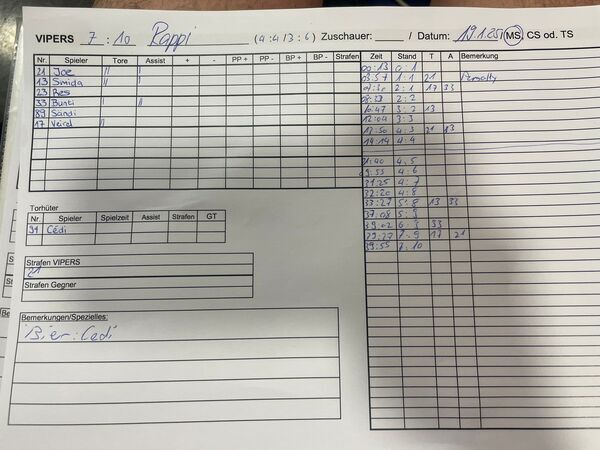 VIPERS 7 : 10 Rappi (4:4/3:6) Zuschauer: / Datum: 19.1.25 / MS, CS od. TS
Nr. Spieler Tore Assist + - PP + PP - BP + BP - Strafen
21 Joe || |
13 Smida || |
23 Res
33 Bunti | ||
89 Sandi
17 Veirel ||
Zeit Stand T A Bemerkung
00:13 0:1
03:57 1:1 21 Penalty
07:30 2:1 17 33
08:39 2:2
10:47 3:2 13
12:04 3:3
13:50 4:3 21 13
14:14 4:4
21:40 4:5
29:55 4:6
31:25 4:7
32:20 4:8
33:27 5:8 13 33
37:08 5:9
39:02 6:9 33
39:27 7:9 17 21
39:55 7:10
Torhüter
Nr. Spieler Spielzeit Assist Strafen GT
91 Cédi
Strafen VIPERS
21
Strafen Gegner
Bemerkungen/Spezielles:
Bier: Cedi